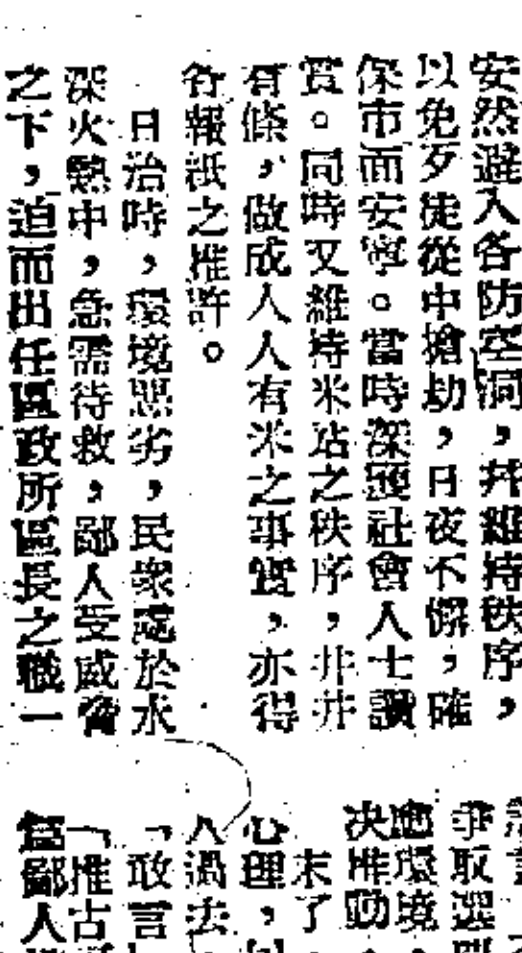 安然避入各防空洞,幷維持秩序,
以免歹徒從中搶劫,日夜不懈,確
保市而安寧。當時深頭社會人士讚
賞。同時又維持米站之秩序,井井
有條,做成人人有米之事實,亦得
各報紙之推許。
日治時,環境惡劣,民衆處於水
深火熱中,急需待救,鄙人受威脅
之下,迫而出任區政所區長之職一
爭取選
應環境,
决推動,
末了,
心理,
人過去,
「敢言
「推古
爲鄙人